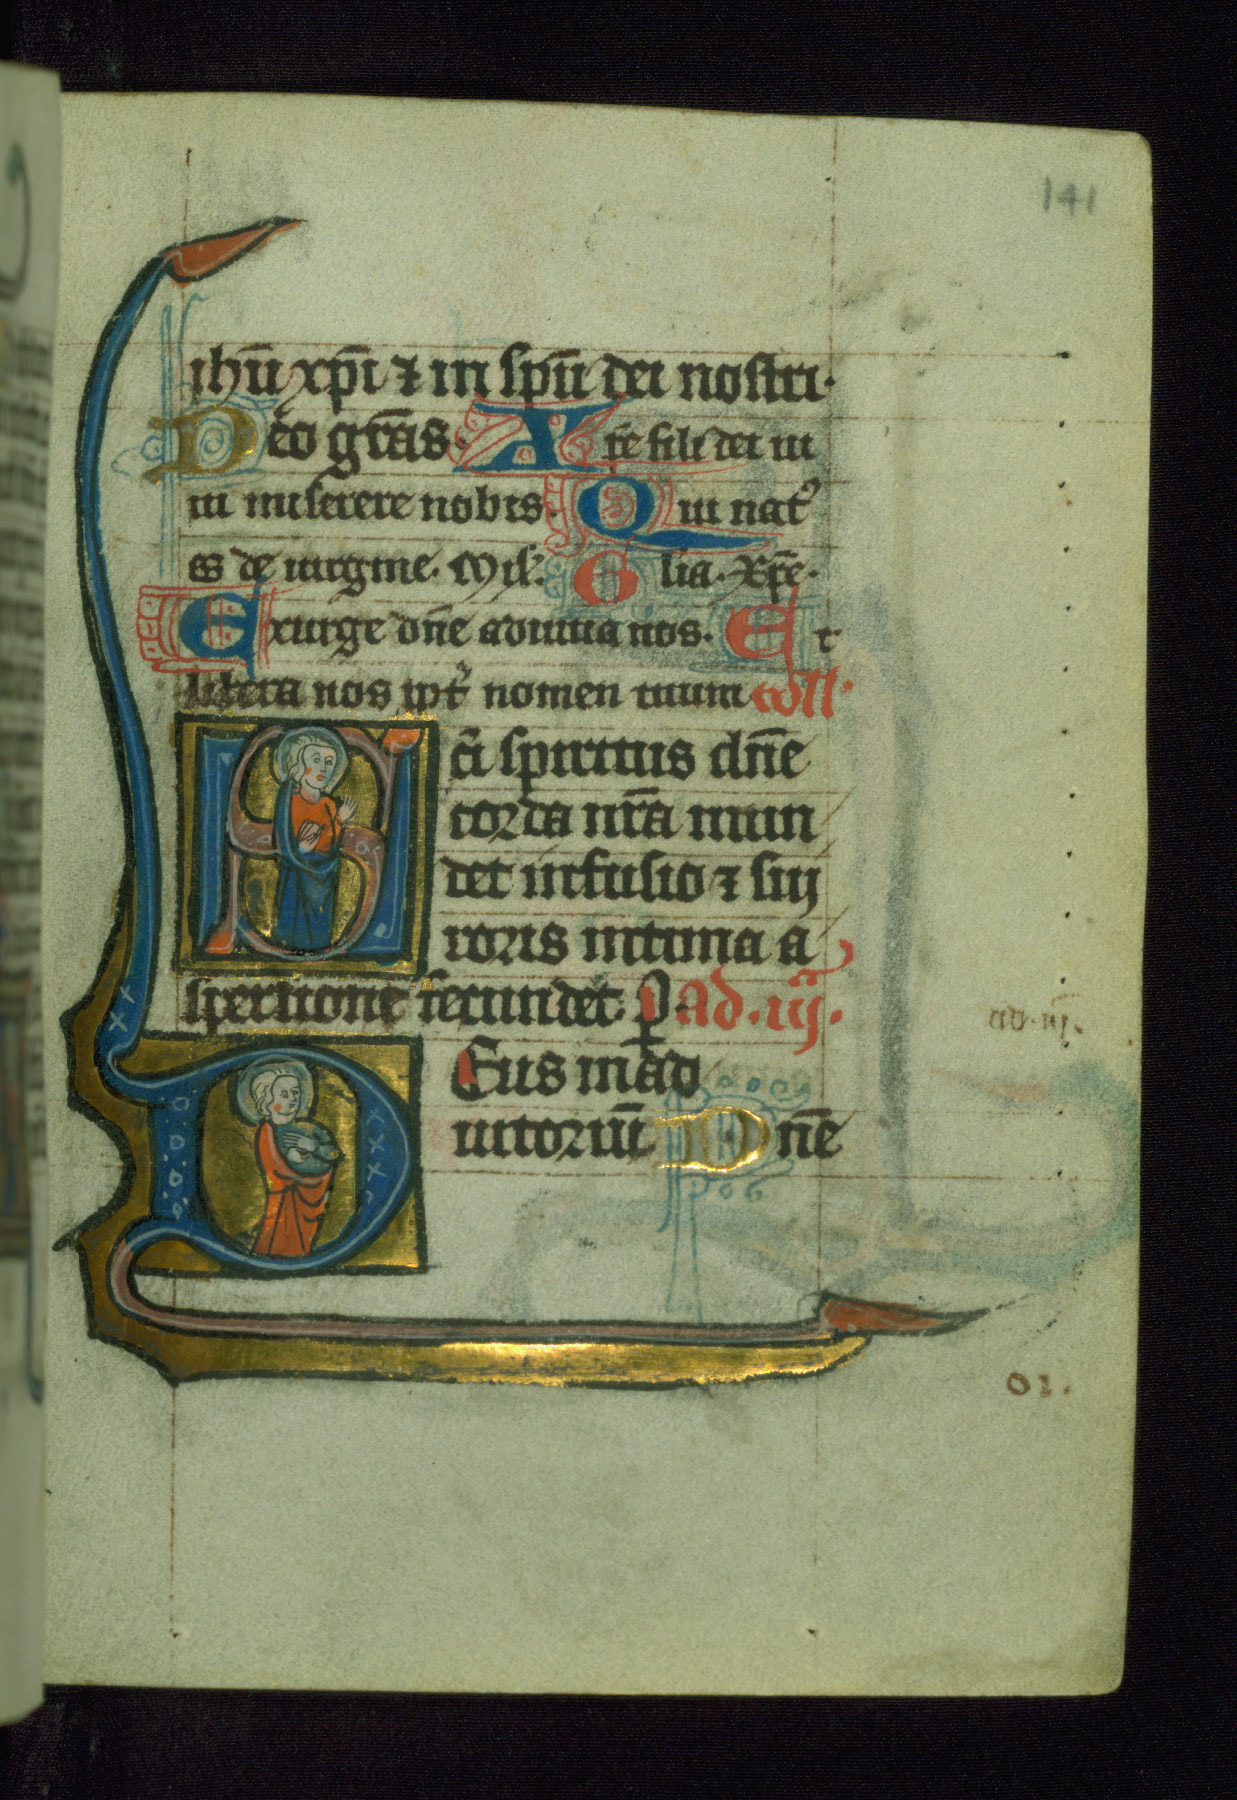 141
ihū xp̄i ⁊ in sp̄u dei nostri·
Deo gr̄as· Xp̄e fili dei ui
ui miserere nobis· Qui nat᷒
es de uirgine· Mis̄· Glia· Xp̄e·
Exurge dn̄e adiuua nos· Et
libera nos ꝓpt̄ nomen tuum coll̄·
Sc̄i spiritus dn̄e
corda nr̄a mun
det infusio ⁊ sui
roris intima a
spersione fecundet· P̲· Ad·iij·
ad·iij·
Deus in ad
iutoriū Dn̄e
oz·